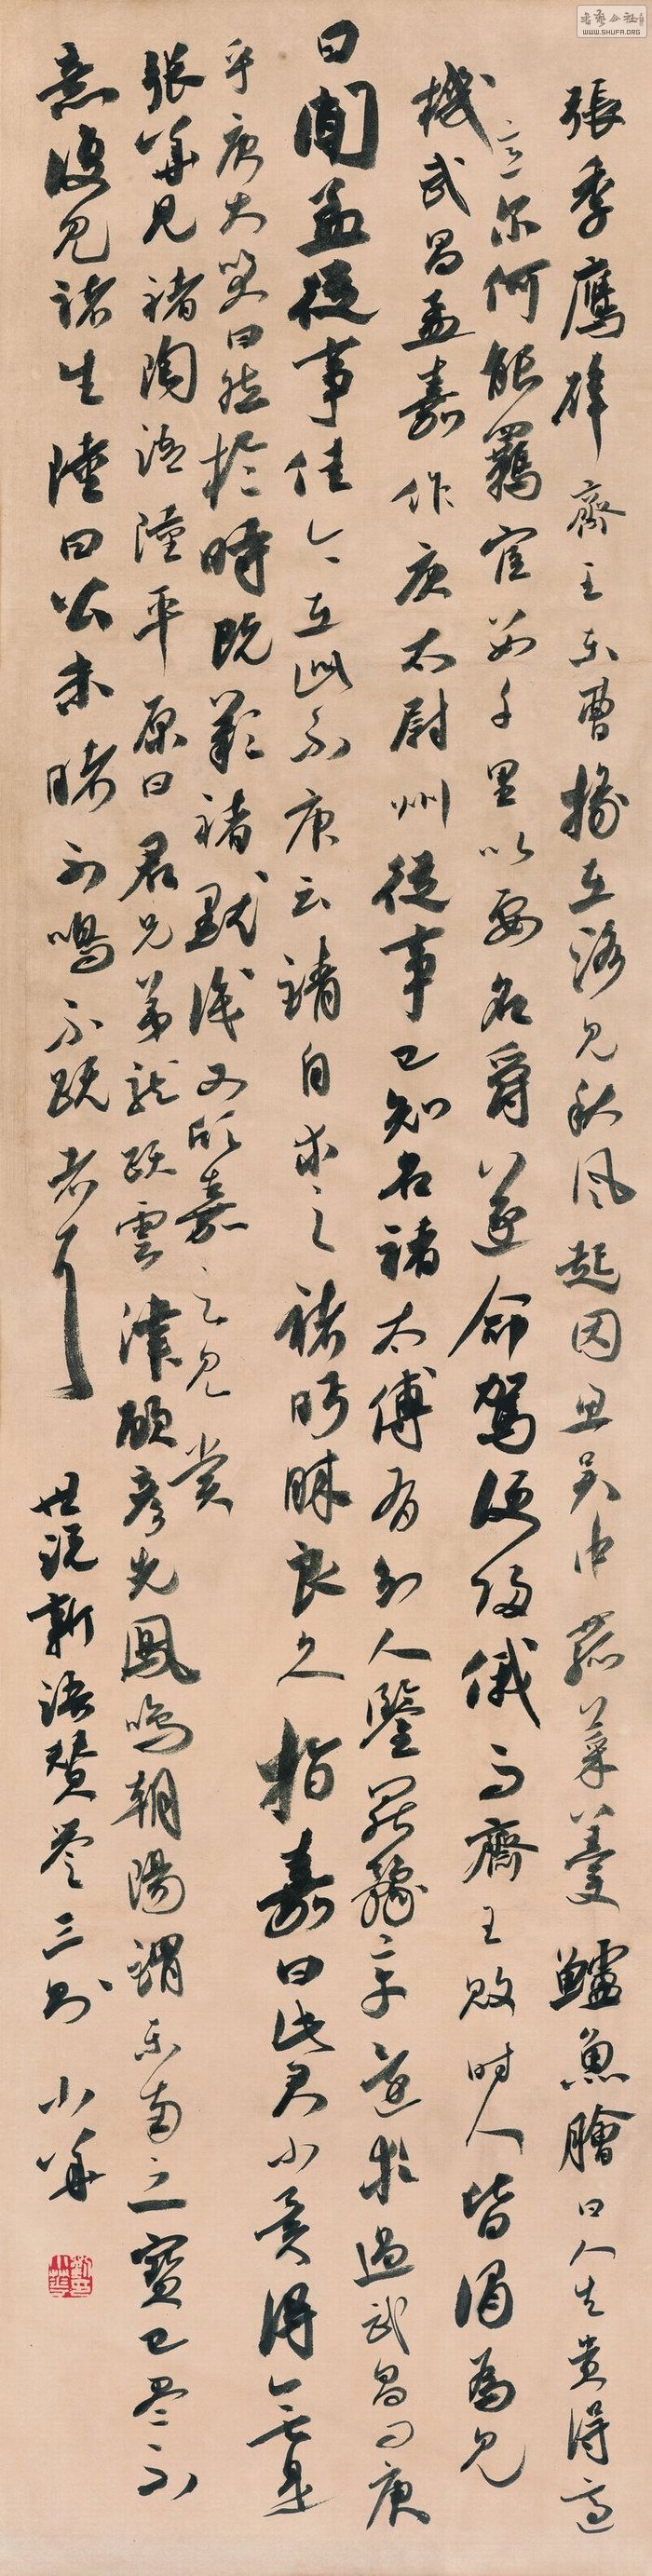 張季鷹辟齊王東曹掾在洛見秋風起因思吳中菰菜羹鱸魚膾曰人生貴得適
意尔何能羈宦數千里以要名爵遂命駕便歸俄而齊王敗時人皆謂為見
機武昌孟嘉作庾太尉州從事已知名褚太傅有知人鑒罷豫章還於過武昌問庾
曰聞孟從事佳今在此不庾云請自求之褚眄睞良久指嘉曰此君小異得無是
乎庾大笑曰然於時既歎褚默識又欣嘉之見賞
張華見褚陶語陸平原曰君兄弟龍躍雲津顧彥先鳳鳴朝陽謂東南之寶已盡不
意復見諸生陸曰公未睹不鳴不躍者耳
世說新語贊譽三則 小華
WWW.SHUFA.ORG